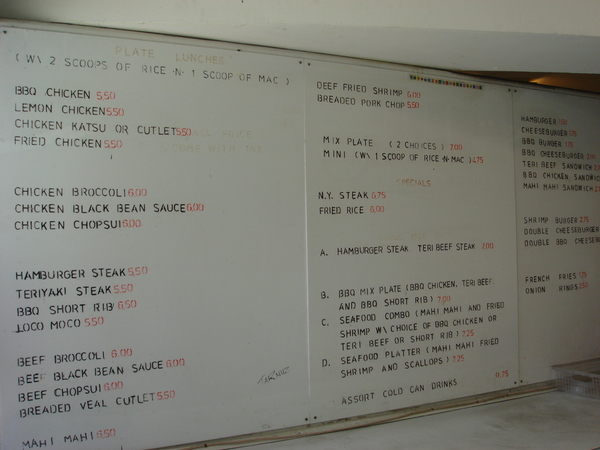 PLATE LUNCHES
( W\ 2 SCOOPS OF RICE ·N· 1 SCOOP OF MAC )
BBQ CHICKEN 5.50
LEMON CHICKEN 5.50
CHICKEN KATSU OR CUTLET 5.50
FRIED CHICKEN 5.50
CHICKEN BROCCOLI 6.00
CHICKEN BLACK BEAN SAUCE 6.00
CHICKEN CHOPSUI 6.00
HAMBURGER STEAK 5.50
TERIYAKI STEAK 5.50
BBQ SHORT RIB 6.50
LOCO MOCO 5.50
BEEF BROCCOLI 6.00
BEEF BLACK BEAN SAUCE 6.00
BEEF CHOPSUI 6.00
BREADED VEAL CUTLET 5.50
MAHI MAHI 6.50
DEEF FRIED SHRIMP 6.00
BREADED PORK CHOP 5.50
MIX PLATE ( 2 CHOICES ) 7.00
MINI ( W\ 1 SCOOP OF RICE ·N· MAC ) 4.75
SPECIALS
N.Y. STEAK 6.75
FRIED RICE 6.00
A. HAMBURGER STEAK TERI BEEF STEAK 7.00
B. BBQ MIX PLATE ( BBQ CHICKEN, TERI BEEF,
AND BBQ SHORT RIB ) 7.00
C. SEAFOOD COMBO ( MAHI MAHI AND FRIED
SHRIMP W\ CHOICE OF BBQ CHICKEN OR
TERI BEEF OR SHORT RIB ) 7.25
D. SEAFOOD PLATTER ( MAHI MAHI FRIED
SHRIMP AND SCALLOPS ) 7.25
ASSORT COLD CAN DRINKS 0.75
HAMBURGER
CHEESEBURGER
BBQ BURGER
BBQ CHEESEBURGER
TERI BEEF SANDWICH
BBQ CHICKEN SANDWICH
MAHI MAHI SANDWICH
SHRIMP BURGER
DOUBLE CHEESEBURGER
DOUBLE BBQ
FRENCH FRIES
ONION RINGS